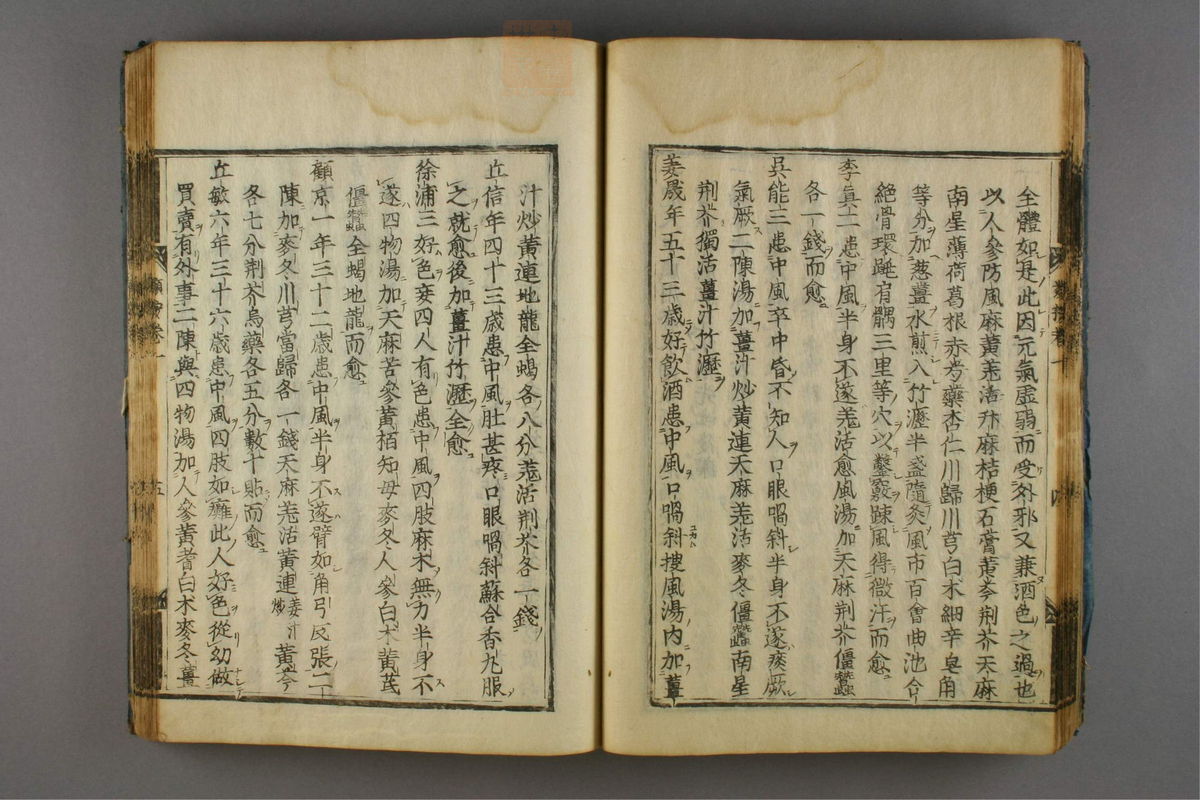 全體如是此因元氣虛弱而受外邪又兼酒色之過也
以人參防風麻黃羗活升麻桔梗石膏黃芩荆芥天麻
南星薄荷葛根赤芍藥杏仁川歸川芎白朮細辛皂角
等分加葱薑水煎入竹瀝半盞隨灸風市百會曲池合
絶骨環跳肩髃三里等穴以鑿竅踈風得微汗而愈
李眞二患中風半身不遂羗活愈風湯加天麻荆芥僵蠶
各一錢而愈
吳能三患中風卒中昏不知人口眼喎斜半身不遂痰厥
氣厥二陳湯加薑汁炒黃連天麻羗活麥冬僵蠶南星
荆芥獨活薑汁竹瀝
姜晟年五十三歲好飲酒患中風口喎斜搜風湯内加薑
汁炒黃連地龍全蝎各八分羗活荆芥各一錢
丘信年四十三歲患中風肚甚疼口眼喎斜蘇合香丸服
之就愈後加薑汁竹瀝全愈
徐浦三好色妾四人有色患中風四肢麻木無力半身不
遂四物湯加天麻苦參黃栢知母麥冬人參白朮黃芪
僵蠶全蝎地龍而愈
顧京一年三十二歲患中風半身不遂臂如角引反張二
陳加麥冬川芎當歸各一錢天麻羗活黃連姜汁炒黃芩
各七分荆芥烏藥各五分數十貼而愈
丘敏六年三十六歲患中風四肢如癱此人好色從幼做
買賣有外事二陳與四物湯加人參黃耆白朮麥冬薑